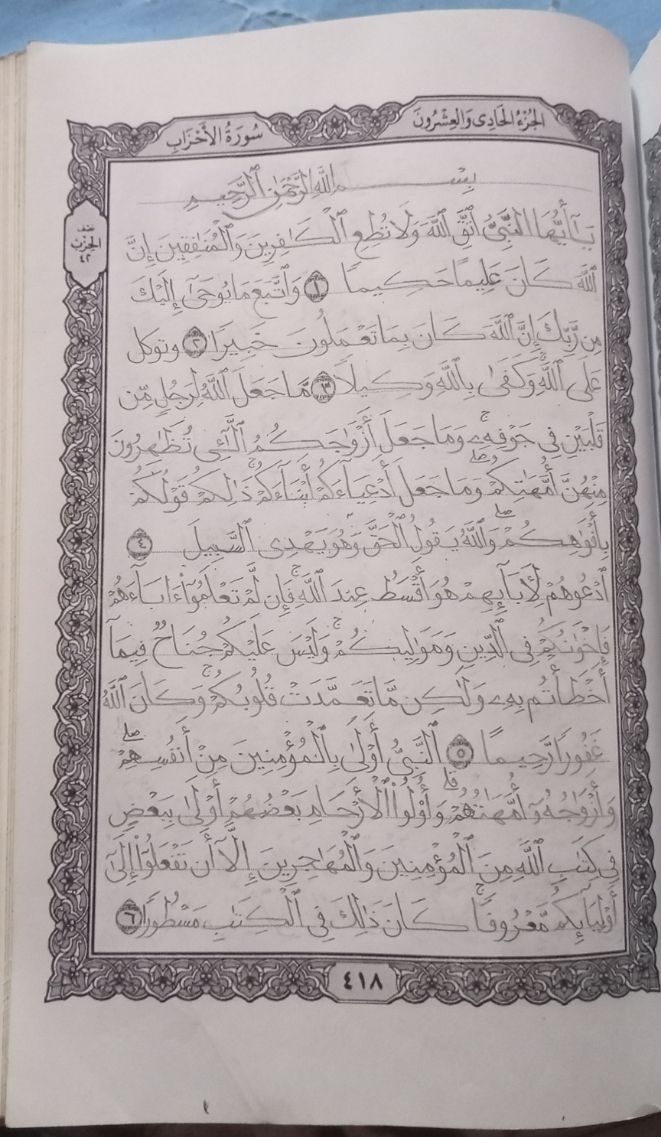 الجُزْءُ الحَادِى وَالعِشْرُونَ
سُورَةُ الأَحْزَابِ
نصف
الحزب
٤٢
بِسْمِ ٱللَّهِ ٱلرَّحْمَٰنِ ٱلرَّحِيمِ
يَـٰٓأَيُّهَا ٱلنَّبِىُّ ٱتَّقِ ٱللَّهَ وَلَا تُطِعِ ٱلْكَـٰفِرِينَ وَٱلْمُنَـٰفِقِينَ إِنَّ
ٱللَّهَ كَانَ عَلِيمًا حَكِيمًا ١ وَٱتَّبِعْ مَا يُوحَىٰٓ إِلَيْكَ
مِن رَّبِّكَ إِنَّ ٱللَّهَ كَانَ بِمَا تَعْمَلُونَ خَبِيرًا ٢ وتوكل
عَلَى ٱللَّهِ ۚ وَكَفَىٰ بِٱللَّهِ وَكِيلًا ٣ مَّا جَعَلَ ٱللَّهُ لِرَجُلٍ مِّن
قَلْبَيْنِ فِى جَوْفِهِۦ ۚ وَمَا جَعَلَ أَزْوَٰجَكُمُ ٱلَّـٰٓـِٔى تُظَـٰهِرُونَ
مِنْهُنَّ أُمَّهَـٰتِكُمْ ۚ وَمَا جَعَلَ أَدْعِيَآءَكُمْ أَبْنَآءَكُمْ ۚ ذَٰلِكُمْ قَوْلُكُم
بِأَفْوَٰهِكُمْ ۖ وَٱللَّهُ يَقُولُ ٱلْحَقَّ وَهُوَ يَهْدِى ٱلسَّبِيلَ ٤
ٱدْعُوهُمْ لِأَبَآئِهِمْ هُوَ أَقْسَطُ عِندَ ٱللَّهِ ۚ فَإِن لَّمْ تَعْلَمُوٓا۟ ءَابَآءَهُمْ
فَإِخْوَٰنُكُمْ فِى ٱلدِّينِ وَمَوَٰلِيكُمْ ۚ وَلَيْسَ عَلَيْكُمْ جُنَاحٌ فِيمَآ
أَخْطَأْتُم بِهِۦ وَلَـٰكِن مَّا تَعَمَّدَتْ قُلُوبُكُمْ ۚ وَكَانَ ٱللَّهُ
غَفُورًا رَّحِيمًا ٥ ٱلنَّبِىُّ أَوْلَىٰ بِٱلْمُؤْمِنِينَ مِنْ أَنفُسِهِمْ ۖ
وَأَزْوَٰجُهُۥٓ أُمَّهَـٰتُهُمْ ۗ وَأُو۟لُوا۟ ٱلْأَرْحَامِ بَعْضُهُمْ أَوْلَىٰ بِبَعْضٍ
فِى كِتَـٰبِ ٱللَّهِ مِنَ ٱلْمُؤْمِنِينَ وَٱلْمُهَـٰجِرِينَ إِلَّآ أَن تَفْعَلُوٓا۟ إِلَىٰٓ
أَوْلِيَآئِكُم مَّعْرُوفًا ۚ كَانَ ذَٰلِكَ فِى ٱلْكِتَـٰبِ مَسْطُورًا ٦
٤١٨